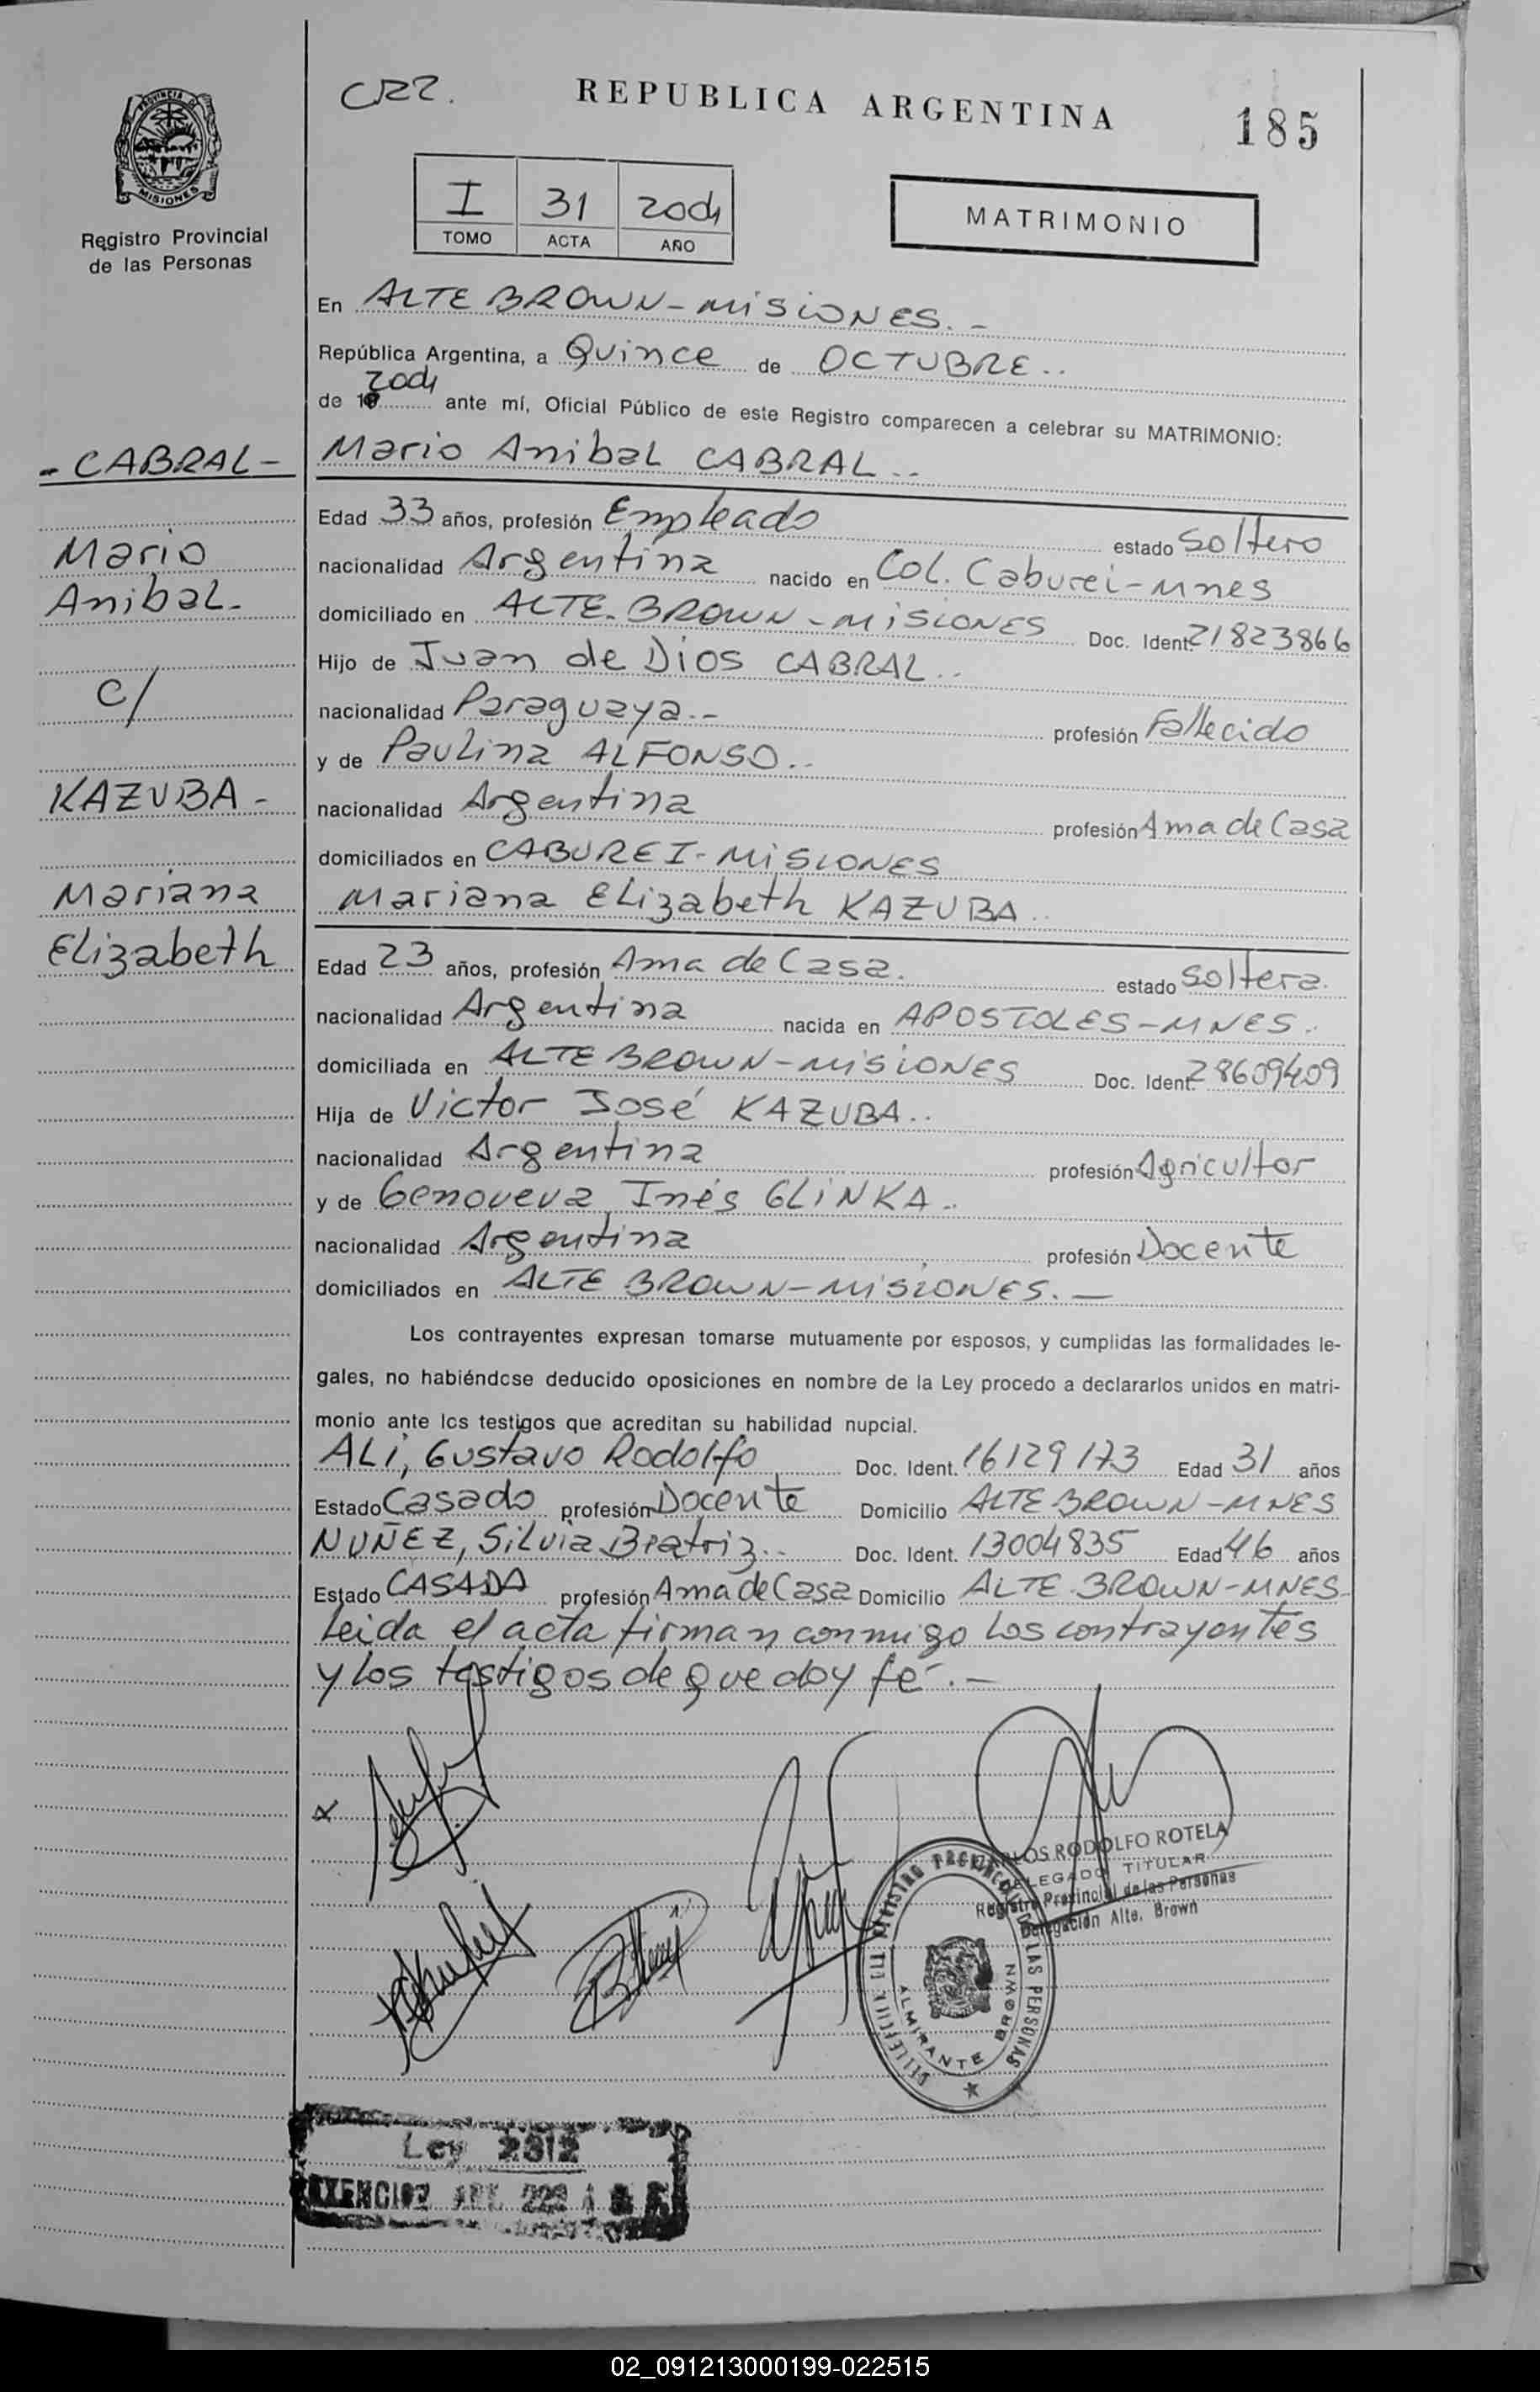 CRZ. REPUBLICA ARGENTINA 185
PROVINCIA DE MISIONES
Registro Provincial
de las Personas
I 31 2004
TOMO ACTA AÑO
MATRIMONIO
En ALTE BROWN - MISIONES. -
República Argentina, a Quince de OCTUBRE..
de 19 2004 ante mí, Oficial Público de este Registro comparecen a celebrar su MATRIMONIO:
- CABRAL - Mario Anibal CABRAL..
Edad 33 años, profesión Empleado estado Soltero
Mario nacionalidad Argentina nacido en Col. Caburei - Mnes
Anibal. domiciliado en ALTE. BROWN - MISIONES Doc. Ident. 21823866
Hijo de Juan de Dios CABRAL..
C/ nacionalidad Paraguaya.- profesión Fallecido
y de Paulina ALFONSO..
KAZUBA - nacionalidad Argentina profesión Ama de Casa
domiciliados en CABUREI - MISIONES
Mariana Mariana Elizabeth KAZUBA..
Elizabeth Edad 23 años, profesión Ama de Casa. estado Soltera.
nacionalidad Argentina nacida en APOSTOLES - MNES.
domiciliada en ALTE BROWN - MISIONES Doc. Ident. 28609409
Hija de Victor José KAZUBA..
nacionalidad Argentina profesión Agricultor
y de Genoveva Inés GLINKA..
nacionalidad Argentina profesión Docente
domiciliados en ALTE BROWN - MISIONES. —
Los contrayentes expresan tomarse mutuamente por esposos, y cumplidas las formalidades le-
gales, no habiéndose deducido oposiciones en nombre de la Ley procedo a declararlos unidos en matri-
monio ante los testigos que acreditan su habilidad nupcial.
ALI, Gustavo Rodolfo Doc. Ident. 16129173 Edad 31 años
Estado Casado profesión Docente Domicilio ALTE BROWN - MNES
NUÑEZ, Silvia Beatriz.. Doc. Ident. 13004835 Edad 46 años
Estado CASADA profesión Ama de Casa Domicilio ALTE. BROWN - MNES-
Leida el acta firman conmigo los contrayentes
y los testigos de que doy fé.-
CARLOS RODOLFO ROTELA
DELEGADO TITULAR
Registro Provincial de las Personas
Delegación Alte. Brown
REGISTRO PROVINCIAL DE LAS PERSONAS
ALMIRANTE BROWN
Ley 2312
EXENCION ART. 222
02_091213000199-022515